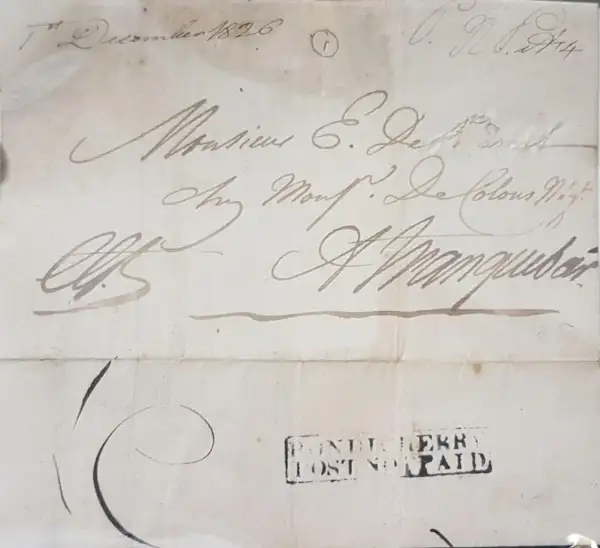 1st December 1826
1
P. N. P. A 4
Monsieur E. De St
chez Monsr. De Colons Négt.
A Tranquebar
PONDICHERRY
POST NOT PAID